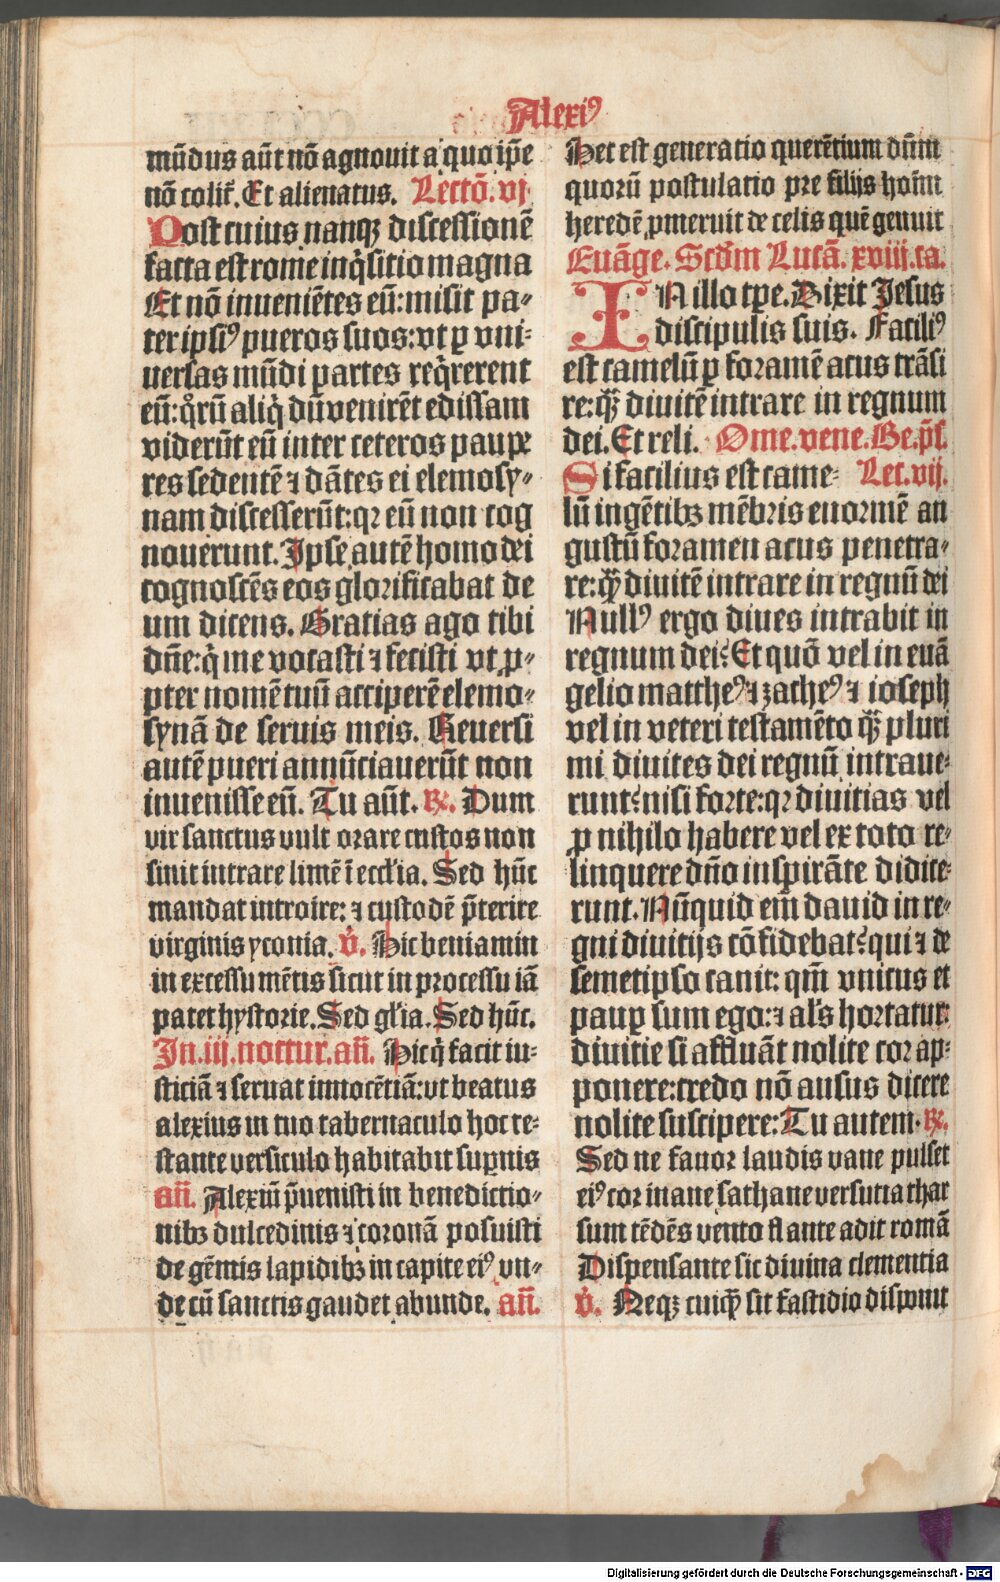 Alexiꝰ
mũdus aũt nõ agnouit a quo ip̃e
nõ colit̃. Et alienatus. Lectõ. vj
Post cuius nanqꝫ discessionẽ
facta est rome inq̃sitio magna
Et nõ inueniẽtes eũ: misit pa-
ter ipsiꝰ pueros suos: vt ꝑ vni-
uersas mũdi partes req̃rerent
eũ: q̃rũ aliq̃ dũ venirẽt edissam
viderũt eũ inter ceteros paupe
res sedentẽ ⁊ dãtes ei elemosy-
nam discesserũt: qꝛ eũ non cog
nouerunt. Ipse autẽ homo dei
cognoscẽs eos glorificabat de
um dicens. Gratias ago tibi
dñe: q̃ me vocasti ⁊ fecisti vt ꝓ-
pter nomẽ tuũ acciperẽ elemo-
synã de seruis meis. Reuersi
autẽ pueri annũciauerũt non
inuenisse eũ. Tu aũt. ℞. Dum
vir sanctus vult orare custos non
sinit intrare limẽ ĩ eccl̃ia. Sed hũc
mandat introire: ⁊ custodẽ p̃terire
virginis yconia. ℣. Hic beniamin
in excessu mẽtis sicut in processu iã
patet hystorie. Sed gl̃ia. Sed hũc.
In .iij. noctur. añ. Hic q̃ facit iu-
sticiã ⁊ seruat innocẽtiã: vt beatus
alexius in tuo tabernaculo hoc te-
stante versiculo habitabit suꝑnis
añ. Alexiũ p̃uenisti in benedictio-
nibꝫ dulcedinis ⁊ coronã posuisti
de gẽmis lapidibꝫ in capite eiꝰ vn-
de cũ sanctis gaudet abunde. añ.
Hec est generatio querẽtium dñm
quorũ postulatio pre filijs hoĩm
heredẽ ꝓmeruit de celis quẽ genuit
Euãge. Scd̃m Lucã. xviij. ca.
IN illo tꝑe. Dixit Jesus
discipulis suis. Faciliꝰ
est camelũ ꝑ foramẽ acus trãsi
re: qꝫ̃ diuitẽ intrare in regnum
dei. Et reli. Ome. vene. Be. p̃s.
Si facilius est came- Lec. vij.
lũ ingẽtibꝫ mẽbris enormẽ an
gustũ foramen acus penetra-
re: qꝫ̃ diuitẽ intrare in regnũ dei
Nullꝰ ergo diues intrabit in
regnum dei? Et quõ vel in euã
gelio mattheꝰ ⁊ zacheꝰ ⁊ ioseph
vel in veteri testamẽto qꝫ̃ pluri
mi diuites dei regnũ intraue-
runt? nisi forte: qꝛ diuitias vel
ꝓ nihilo habere vel ex toto re-
linquere dño inspirãte didice-
runt. Nũquid em̃ dauid in re-
gni diuitijs cõfidebat? qui ⁊ de
semetipso canit: qm̃ vnicus et
pauꝑ sum ego: ⁊ al's hortatur:
diuitie si affluãt nolite cor ap-
ponere: credo nõ ausus dicere
nolite suscipere: Tu autem. ℞.
Sed ne fauor laudis vane pulset
eiꝰ cor inane sathane versutia thar
sum tẽdẽs vento flante adit romã
Dispensante sic diuina clementia
℣. Neqꝫ cuiqꝫ̃ sit fastidio disponit
Digitalisierung gefördert durch die Deutsche Forschungsgemeinschaft - DFG